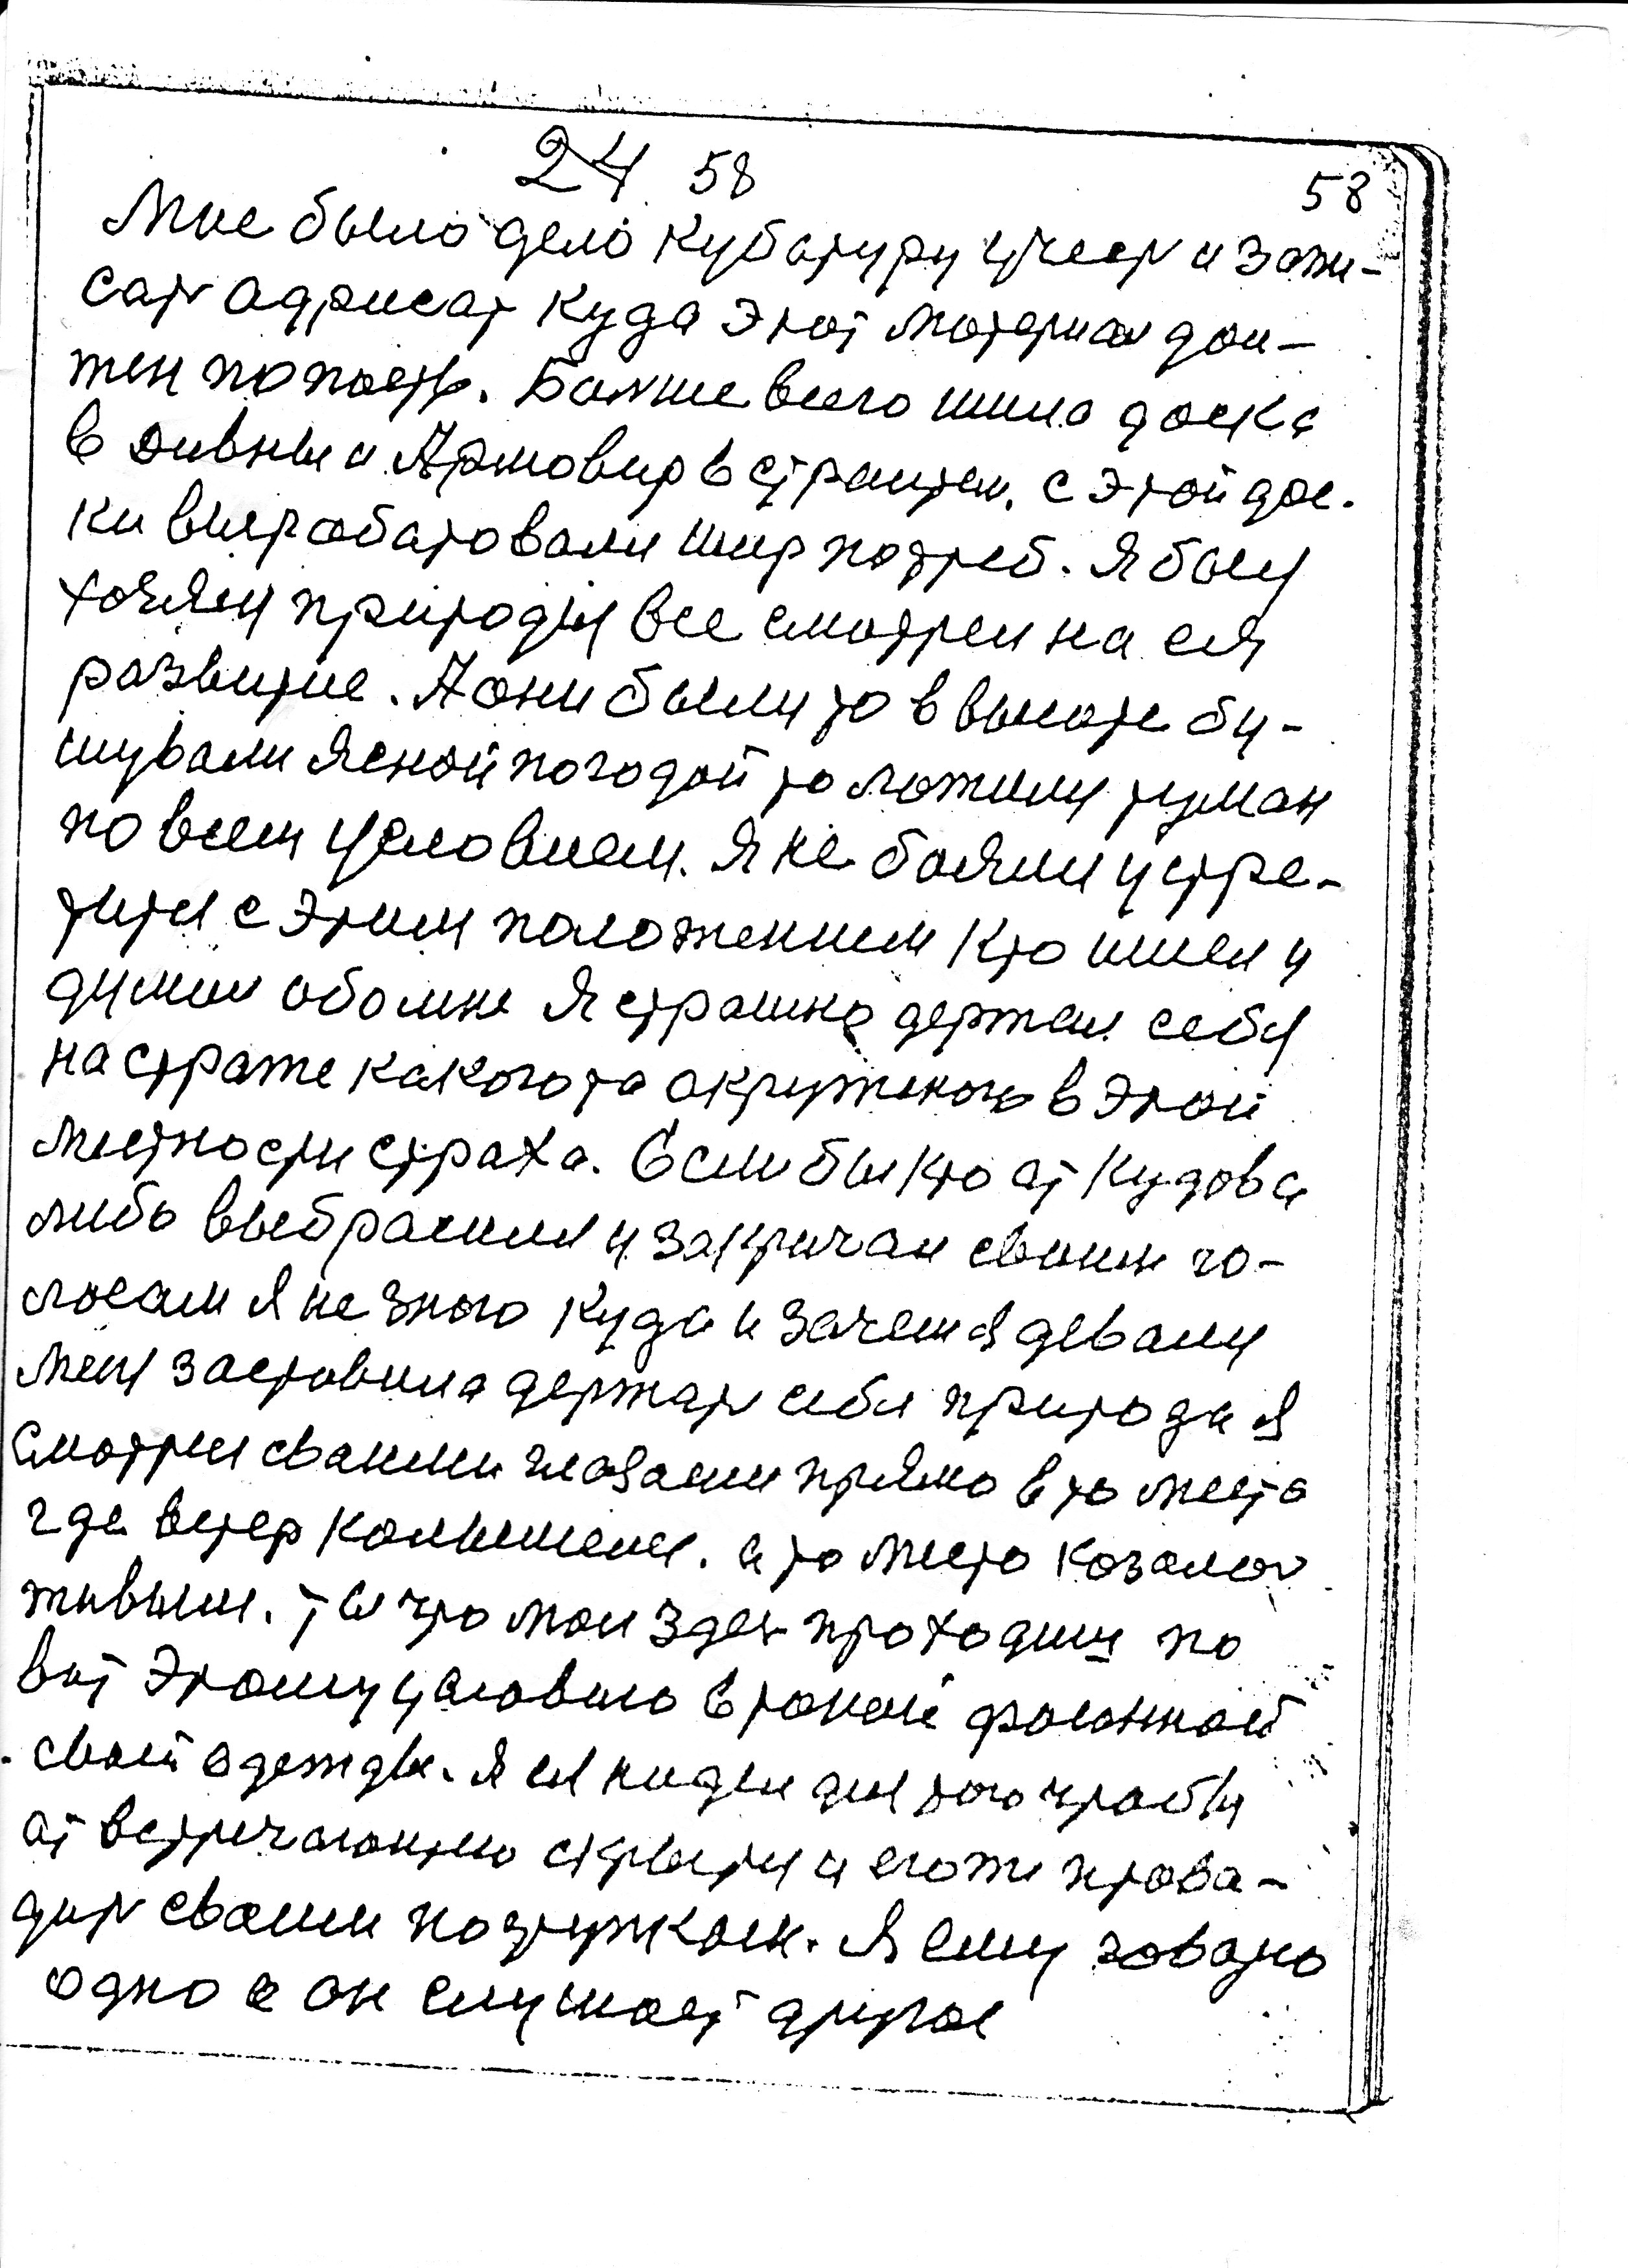 24 58 58
Мне было дело кубатуру учест и запи-
сат адрисат куда этот материал дол-
жен попасть. Болше всего шила доска
в Ливны и Армовир в странтом. с этой дос-
ки вырабатовали ширпотреб. Я был
хозяин природы все смотрел на ея
развитие. А они были то в высоте бу-
шували ясной погодой то ложили туман
по всем условием. Я не боялся устре-
титя с этим положением Кто шел и
думал обо мне я страшно держал себя
на страже какогота окружоного в этой
местности страха. Если бы кто от кудова
либо выбрасился и закричал своим го-
лосам я не знаю куда и зачем я девался
меня заставила держат себя природа я
смотрел своими глазами прямо в то место
где ветер колышелся. а то место козалос
живым. Ты что мол здес проходиш по
вот этому условию в такой фасонной
своей одежды. я ея надел для того чтобы
от встречающию скрытя и егоже прова-
дит своим подружком. Я ему говарю
одно а он слушает другое